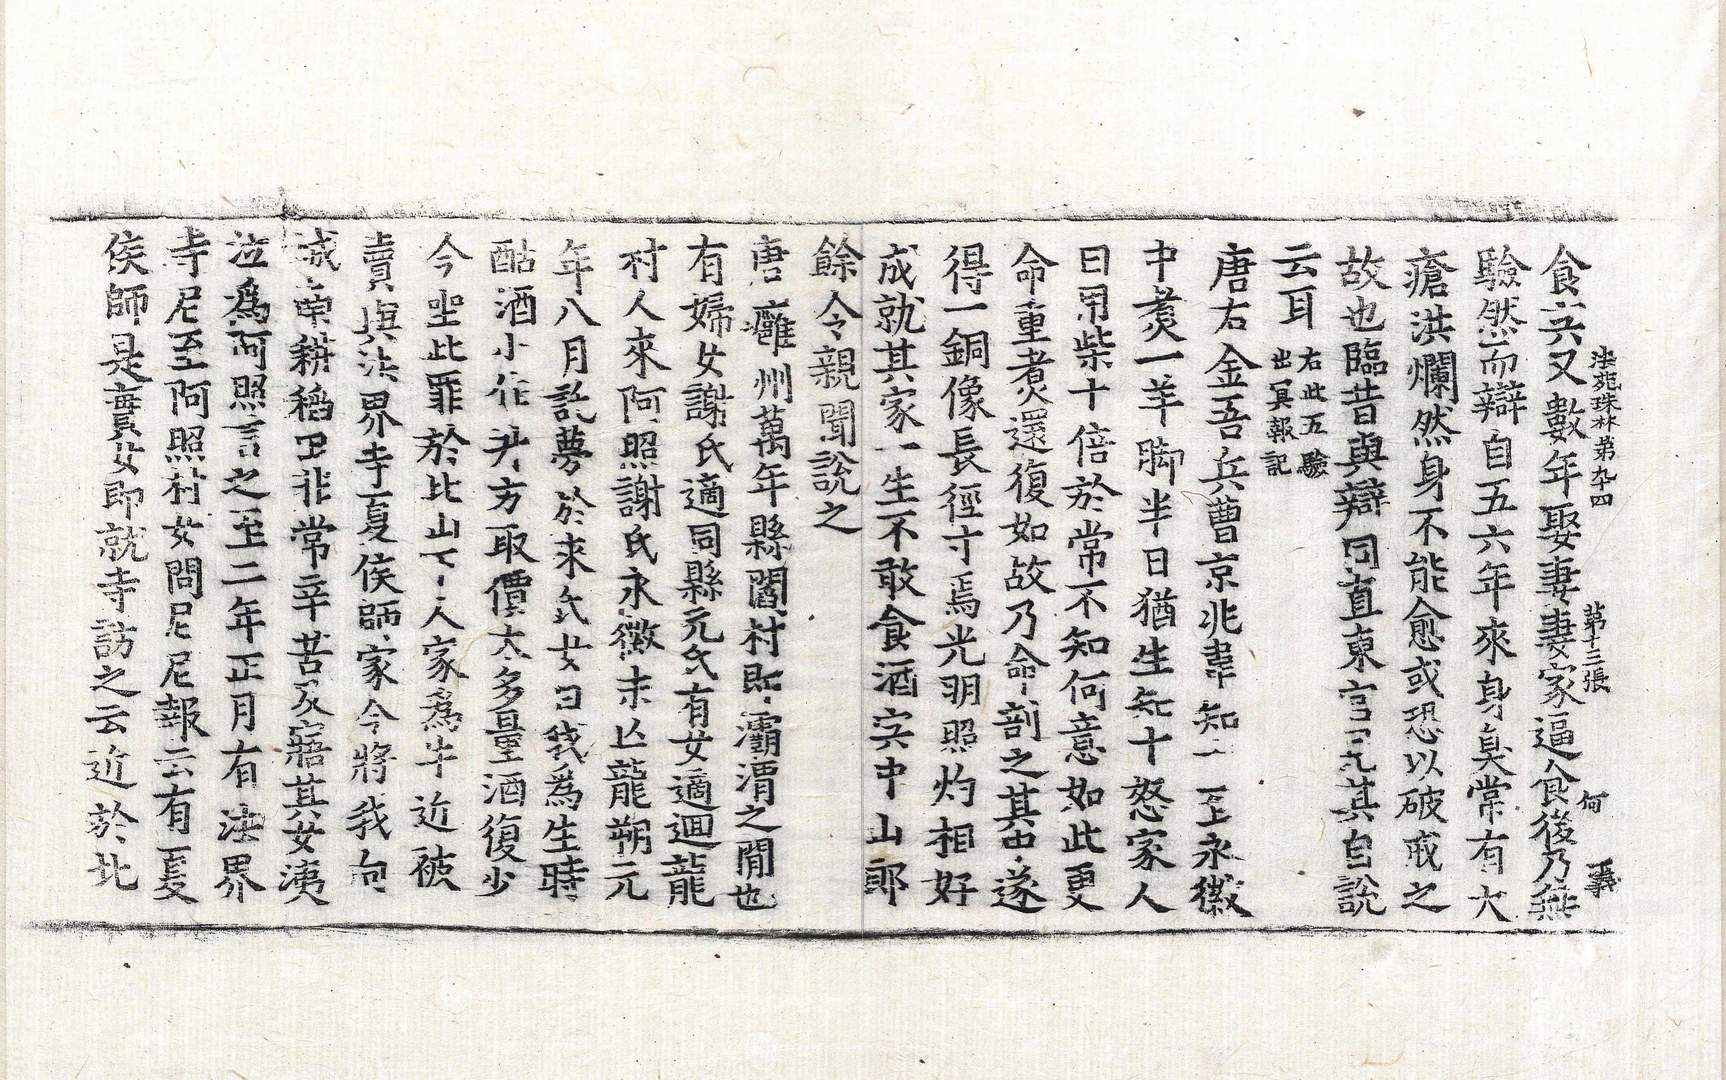 法苑珠林第九十四 第十三張 何
食六又數年娶妻妻家逼食後乃無
驗然而辯自五六年來身臭常有大
瘡洪爛然身不能愈或恐以破戒之
故也臨昔與辯同直東宮見其自說
云耳 右此五驗出冥報記
唐右金吾兵曹京兆韋知十至永徽
中煮一羊脚半日猶生知十怒家人
曰用柴十倍於常不知何意如此更
命重煮還復如故乃命剖之其中遂
得一銅像長徑寸焉光明照灼相好
成就其家一生不敢食酒宍中山郎
餘令親聞說之
唐雍州萬年縣閻村即灞渭之閒也
有婦女謝氏適同縣元氏有女適迴龍
村人來阿照謝氏永徽末亡龍朔元
年八月託夢於來氏女曰我爲生時
酤酒小作升方取價太多量酒復少
今坐此罪於北山下人家爲牛近被
賣與法界寺夏侯師家今將我向
城南耕稻田非常辛苦及寤其女涕
泣爲阿照言之至二年正月有法界
寺尼至阿照村女問尼尼報云有夏
侯師是實女即就寺訪之云近於北